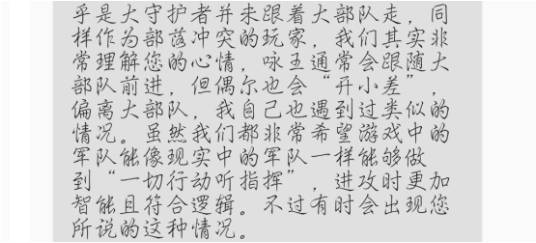 乎是大守护者并未跟着大部队走，同
样作为部落冲突的玩家，我们其实非
常理解您的心情，咏王通常会跟随大
部队前进，但偶尔也会“开小差”，
偏离大部队，我自己也遇到过类似的
情况。虽然我们都非常希望游戏中的
军队能像现实中的军队一样能够做
到“一切行动听指挥”，进攻时更加
智能且符合逻辑。不过有时会出现您
所说的这种情况。